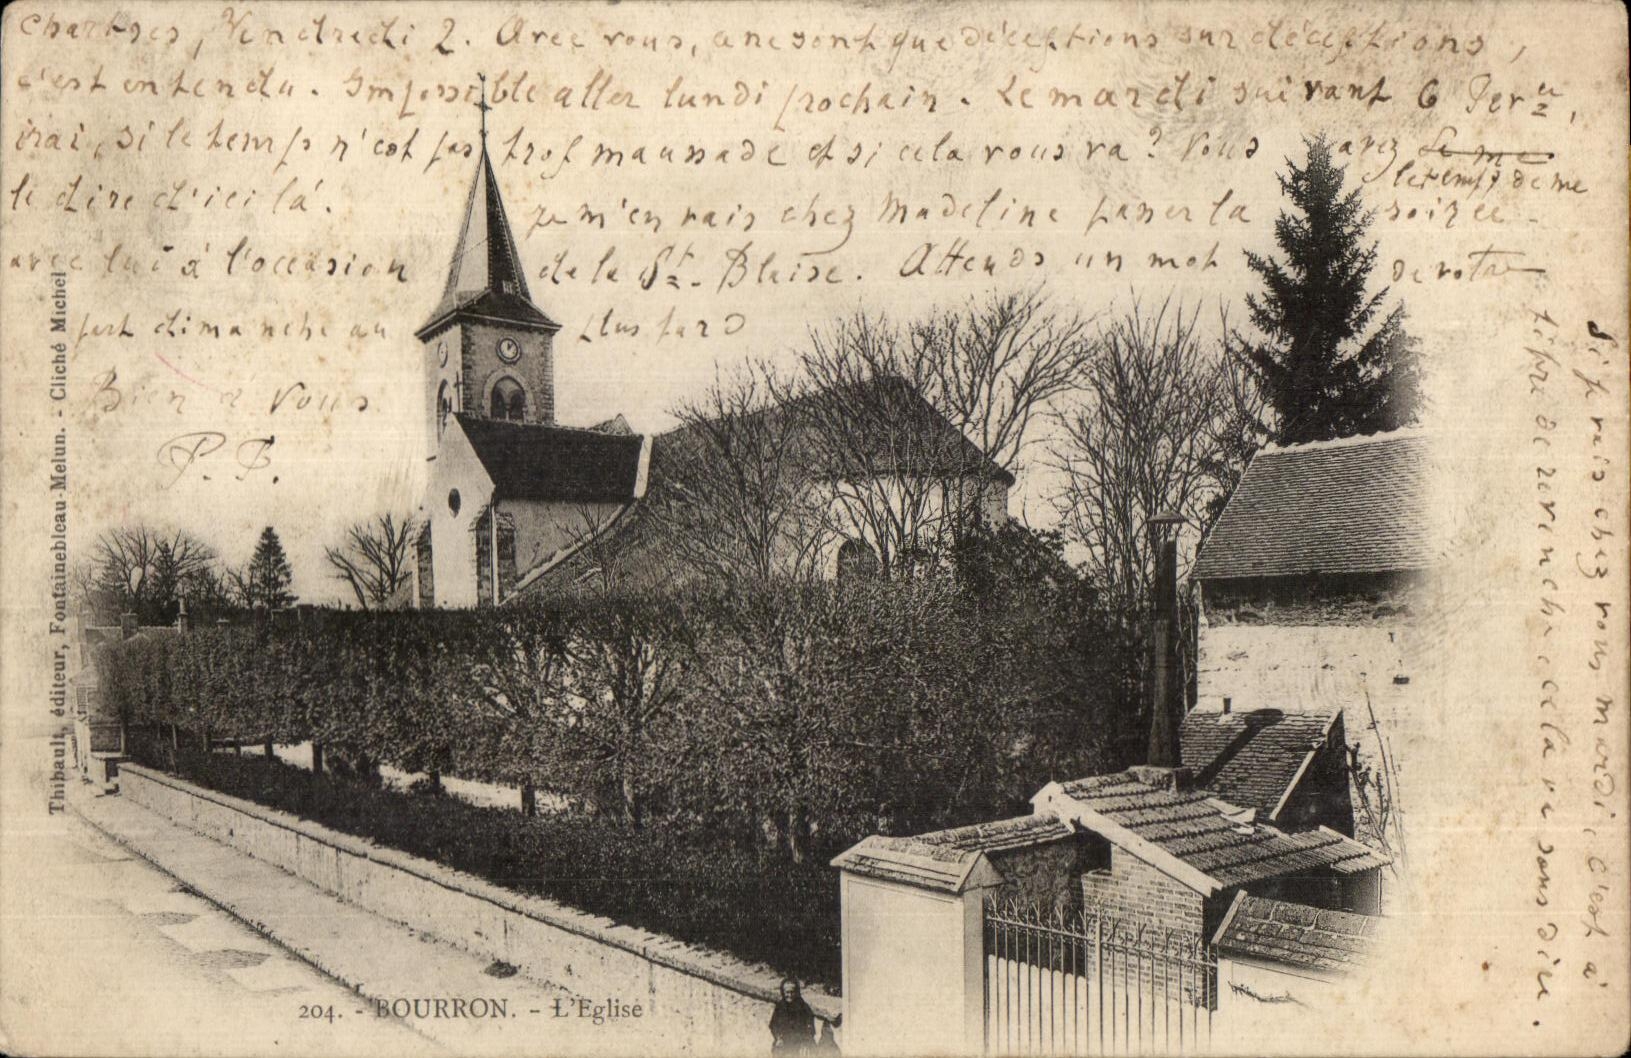 Chartres, Vendredi 2. Avec vous, ce ne sont que déceptions sur déceptions,
c'est entendu. Impossible aller lundi prochain. Le mardi suivant 6 Fer
irai, si le temps n'est pas trop maussade et si cela vous va? Vous avez Le me
le temps de me
le dire d'ici là. Je m'en vais chez Madeline passer la soirée
avec lui à l'occasion de la St. Blaise. Attends un mot de votre
part dimanche au plus tard
Bien à vous
P. B.
Si je vais chez vous, mardi, c'est à
titre de revenche cela va sans dire.
Thibault, éditeur, Fontainebleau-Melun. - Cliché Michel
204. - BOURRON. - L'Eglise